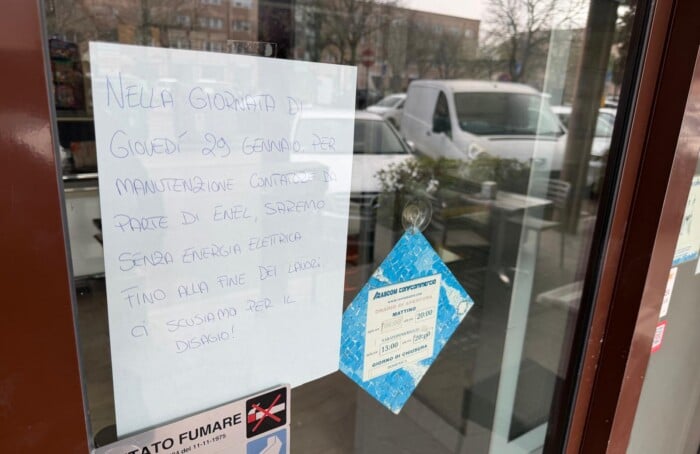 NELLA GIORNATA DI
GIOVEDÍ 29 GENNAIO, PER
MANUTENZIONE CONTATORE DA
PARTE DI ENEL, SAREMO
SENZA ENERGIA ELETTRICA
FINO ALLA FINE DEI LAVORI
CI SCUSIAMO PER IL
DISAGIO!
ascom confcommercio
ORARIO DI APERTURA
MATTINO
20:00
15:00
20:00
GIORNO DI CHIUSURA
TATO FUMARE
del 11-11-1975